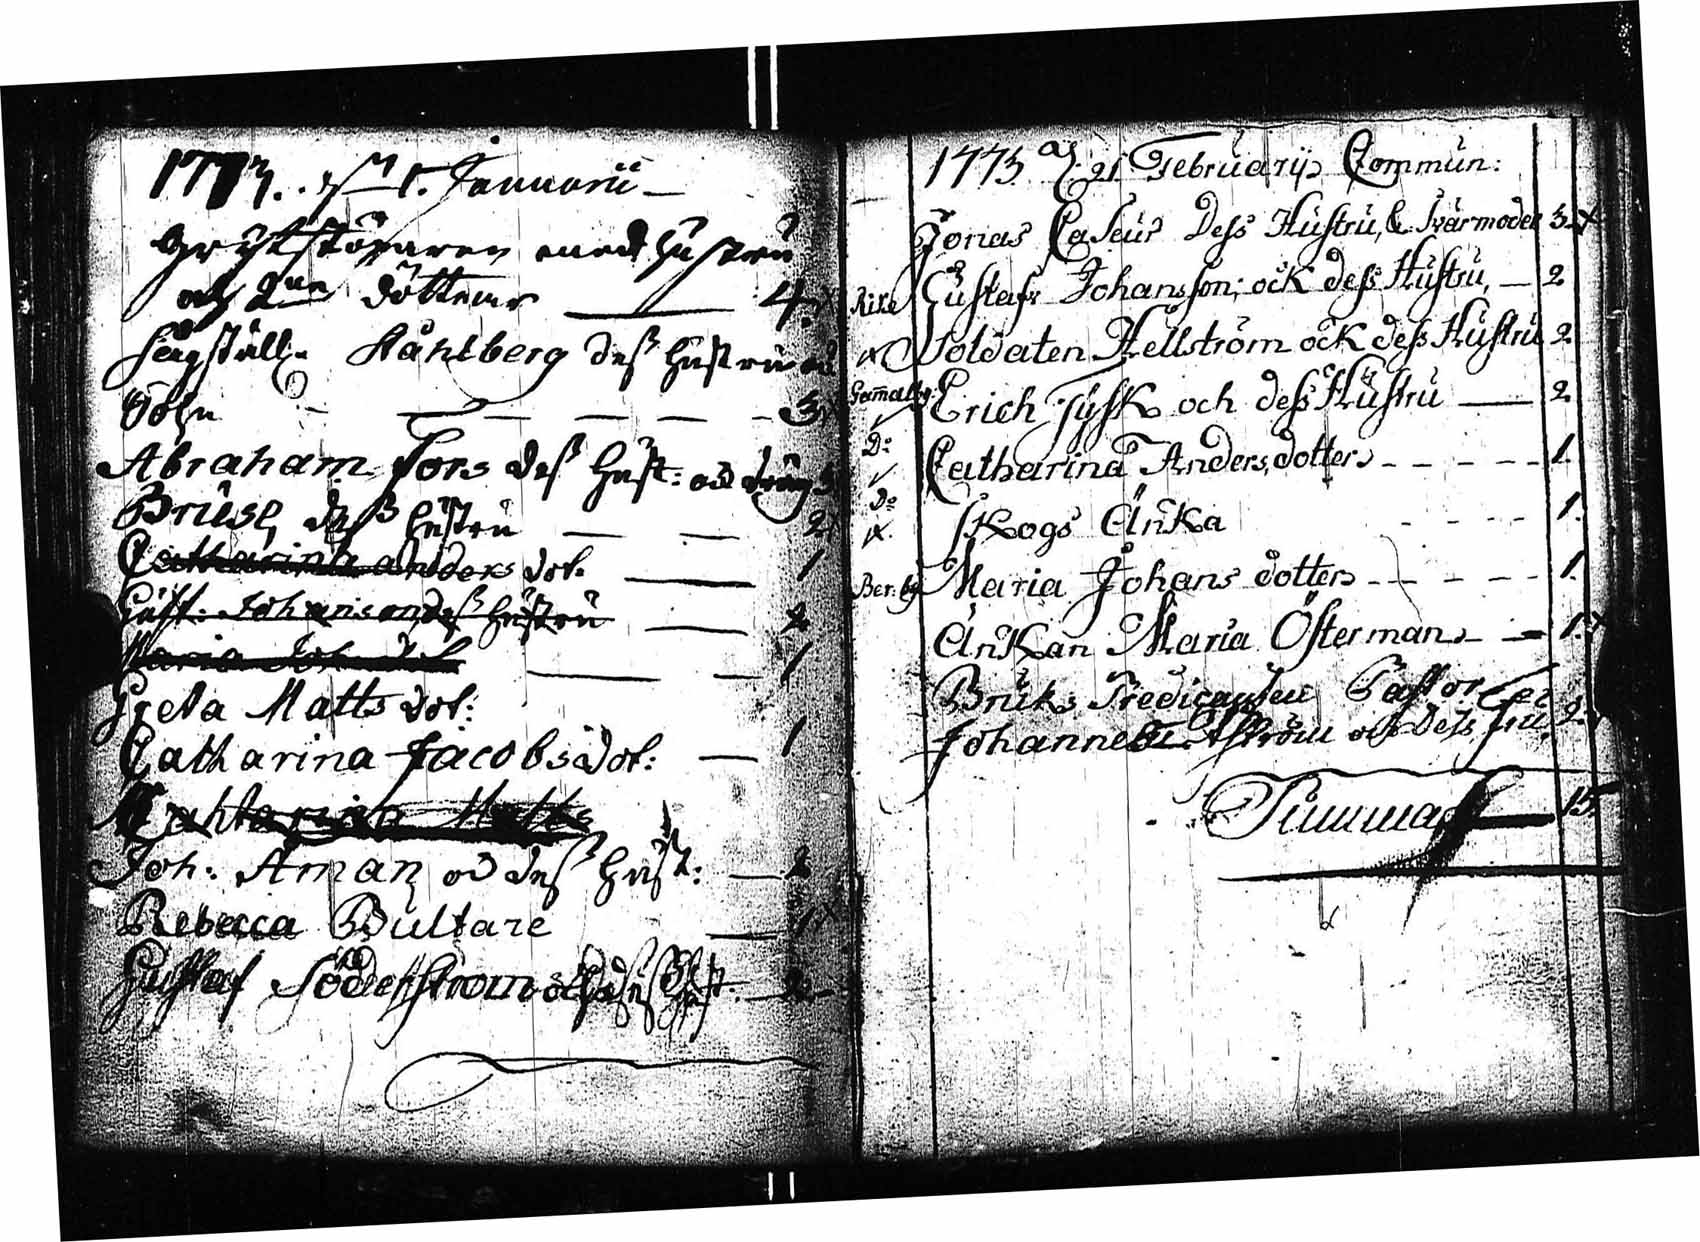 1773. d. 1. Januarii
Grytstöparen med Hustru
och 2ne Döttrar 4.
Ståhlberg dess Hustru och
Sohn 3
Abraham Fors dess Hust: och dräng 3
Brusel, dess Hustru 2
Catharina anders dot: 1
Gust: Johanson dess Hustru 2
Maria Joh: dot 1
Greta Matts dot:
Catharina Jacobs dot: 1
Cathtarina Matts
Joh: Åman och dess Hust: 2
Rebecca Bultare 1
Gustaf Söderström och dess Hust: 2
1773 d. 21 Februarij Commun:
Jonas Caseur Dess Hustru, & Svärmoder 3
Gustaf Johansson; ock dess Hustru, 2
Soldaten Hellström ock dess Hustru 2
Gamalbg. Erich Tysk och dess Hustru 2
Do Catharina Anders dotter 1.
Do Skogs Änka 1.
Ber. by Maria Johans dotter 1.
Änkan Maria Österman 1.
Bruks Predicanten Pastor
Johannes Åström och Dess fru, 2
Summa 15